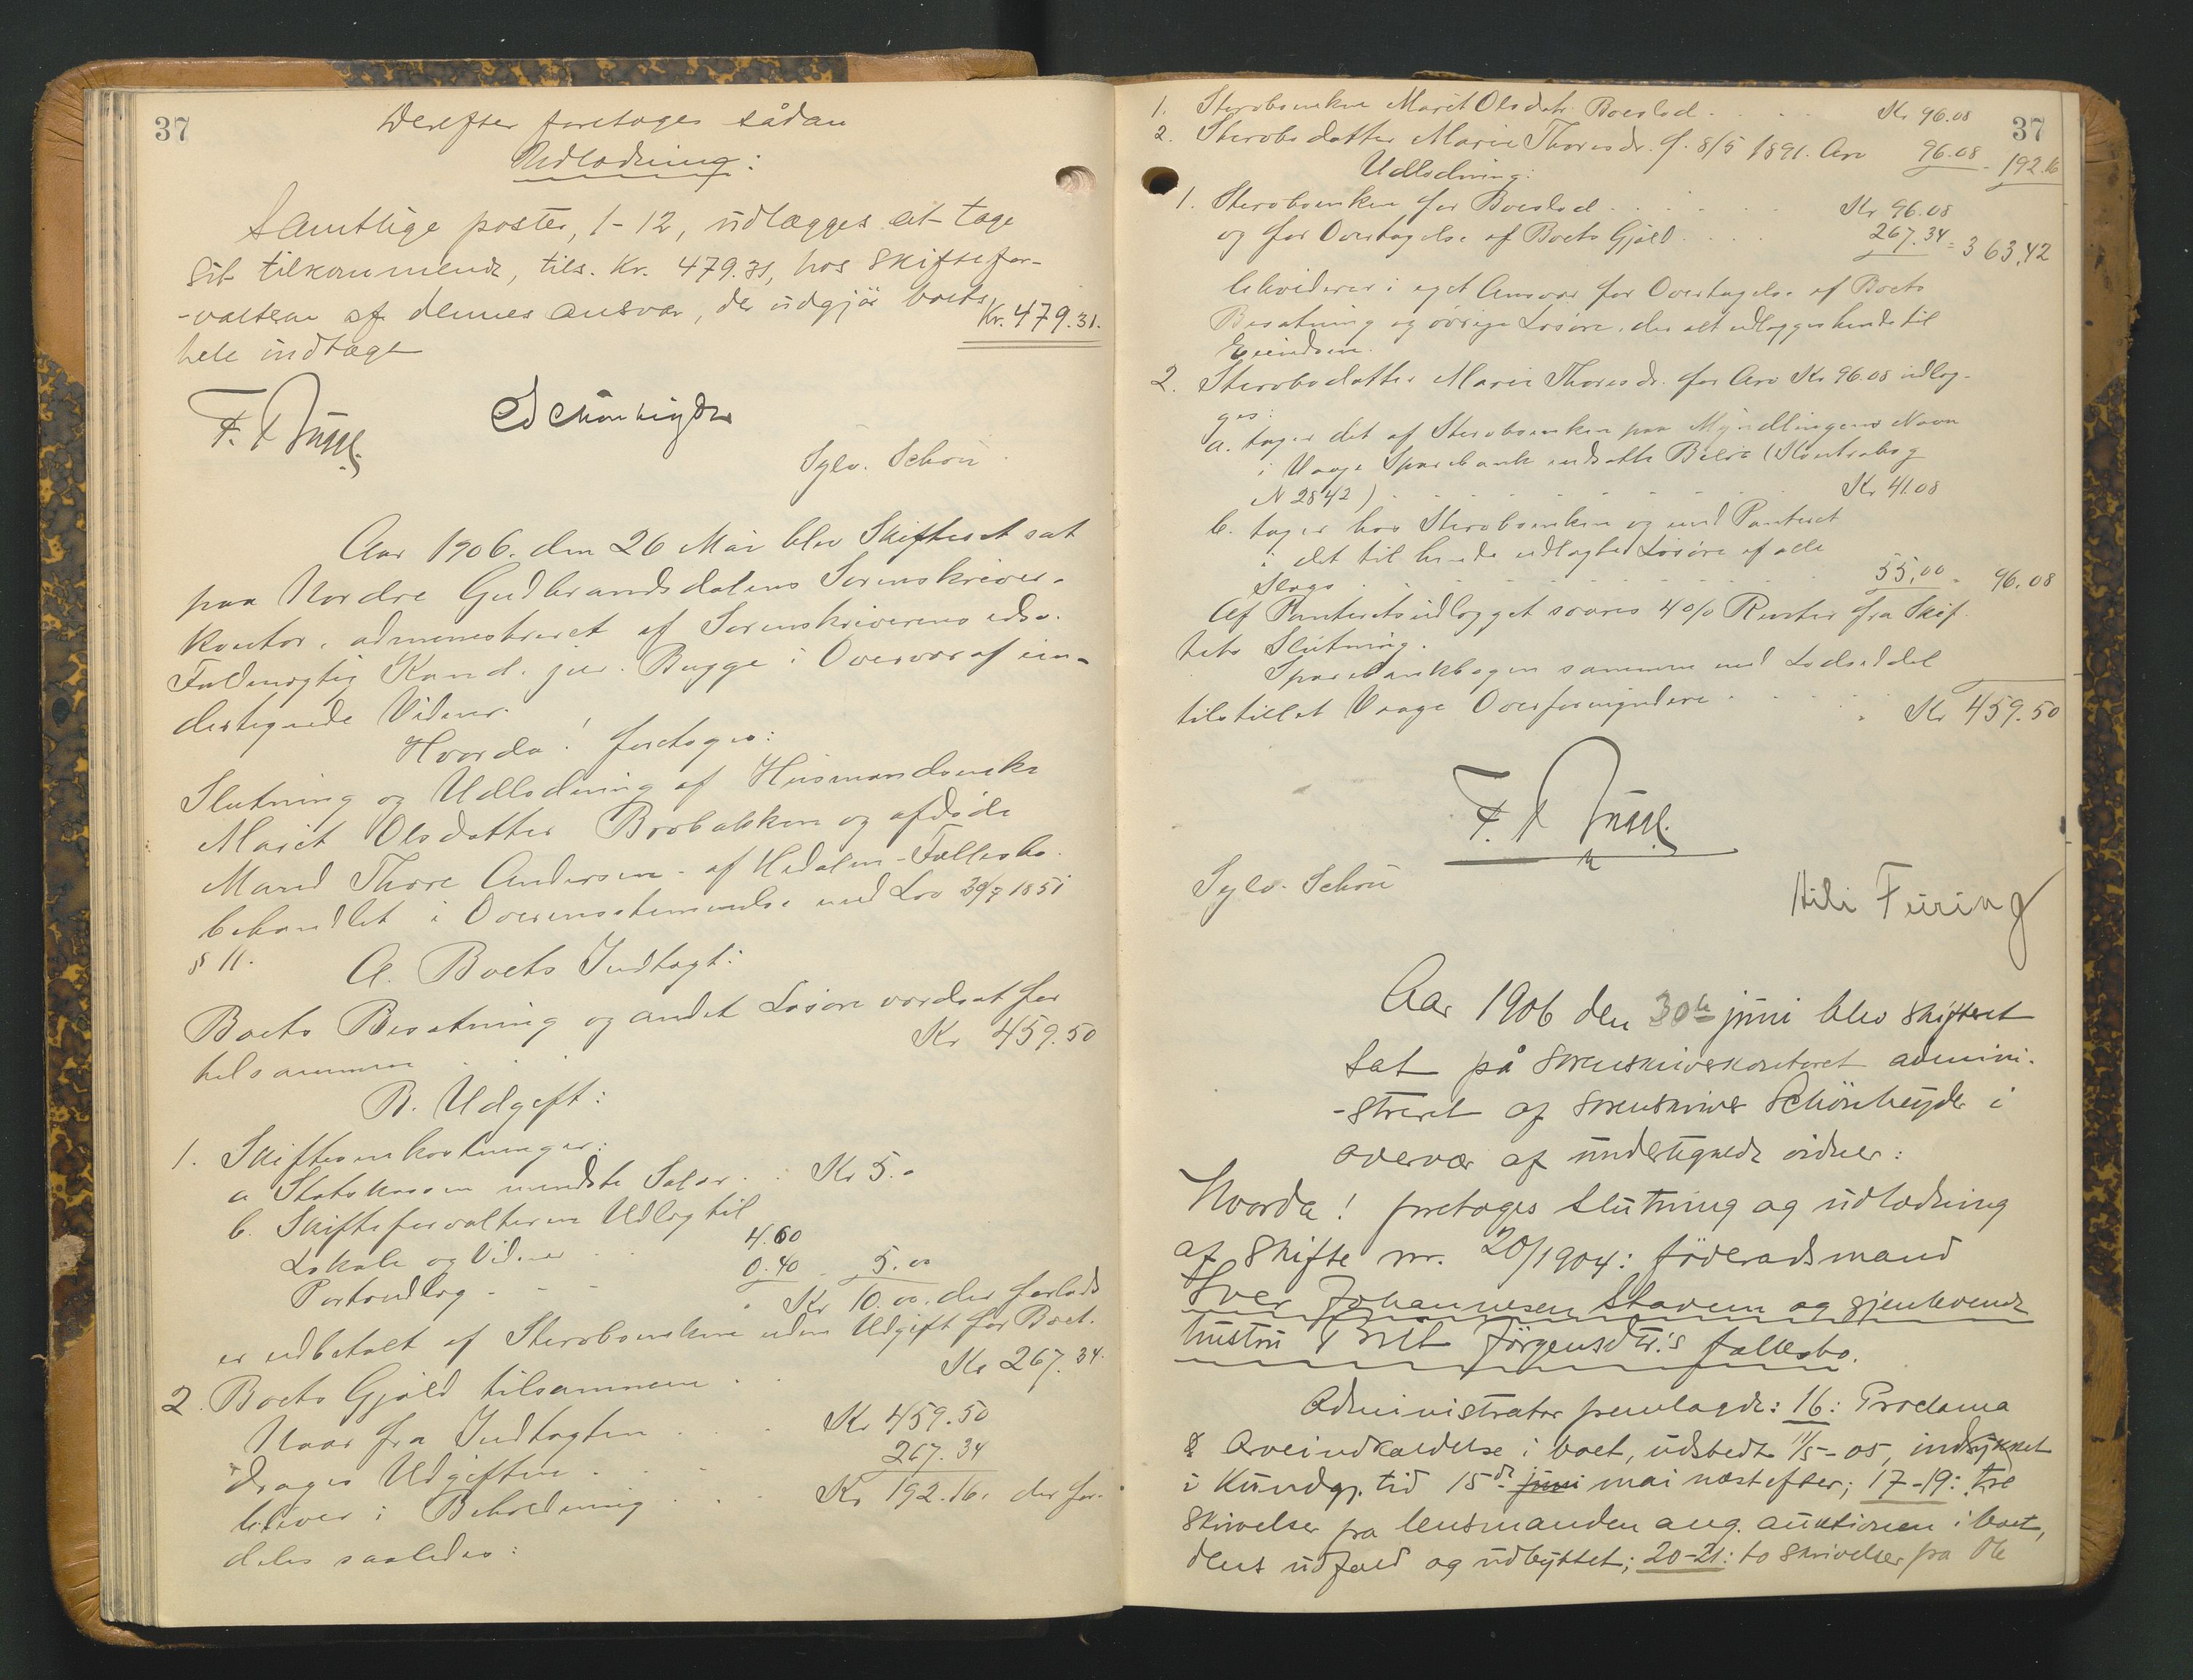 37
Derefter foretoges sådan
Udlodning:
Samtlige poster, 1-12, udlægges at tage
sit tilkommende, tils. Kr. 479.31, hos skiftefor-
-valteren af dennes ansvar, der udgjör boets
hele indtægt Kr. 479.31.
F. Bugge
Schönheyder
Sylv. Schou
Aar 1906. den 26 Mai blev Skifteret sat
paa Nordre Gudbrandsdalens Sorenskriver-
kontor, administreret af Sorenskriverens edsv.
Fuldmægtig Kand. jur. Bugge i Overvær af un-
dertegnede Vidner.
Hvorda! foretoges:
Slutning og Udlodning af Husmandsenke
Marit Olsdatter Brobakken og afdøde
Mand Thore Andersen - af Hedalen - Fællesbo
behandlet i Overensstemmelse med Lov 30/7 1851
§ 11.
A. Boets Indtægt:
Boets Besætning og andet Løsøre værdsat for
tilsammen Kr 459.50
B. Udgift:
1. Skifteomkostninger:
a Statskassen mindste Salær . . Kr 5.-
b. Skifteforvalteren Udlæg til
Lokale og Vidner . . 4.60
Portoudlæg - - - 0.40 5.00
Kr 10.00. der forlods
er udbetalt af Stervboenken uden Udgift for Boet.
2. Boets Gjæld tilsammen . . Kr 267.34.
Naar fra Indtægten . . . . Kr 459.50
drages Udgiften . . . . 267.34
bliver i Beholdning . . . Kr 192.16. der for-
deles saaledes:
37
1. Stervboenken Marit Olsdatr. Boeslod . . . . Kr 96.08
2. Stervbodatter Marie Thoresdr. f. 8/5 1891. Arv 96.08 - 192.16
Udlodning:
1. Stervboenken for Boeslod . . . . . . Kr 96.08
og for Overtagelse af Boets Gjæld . . . . 267.34 = 363.42
likviderer i eget Ansvar for Overtagelse af Boets
Besætning og øvrige Løsøre, der alt udlægges hende til
Eiendom.
2. Stervbodatter Marie Thoresdr. for Arv Kr 96.08 udlæg-
ges:
a. tager det af Stervboenken paa Myndlingens Navn
i Vaage Sparebank indsatte Beløb (Kontrabog
N 2842) . . . . . . . Kr 41.08
b. tager hos Stervboenken og med Panteret
i det til hende udlagte Løsøre af alle
Slags . . . . . . . . 55.00 - 96.08
Af Panteretsudlægget svares 4 o/o Renter fra Skif-
tets Slutning.
Sparebankbogen sammen med Lodseddel
tilstillet Vaage Overformynderi . . . . . Kr 459.50
F. Bugge
Sylv. Schou
Hili Furing
Aar 1906 den 30te juni blev skifteret
sat på sorenskriverkontoret admini-
-streret af sorenskriver Schönheyder i
overvær af undertegnede vidner:
Hvorda! foretoges slutning og udlodning
af skifte nr. 20/1904: föderadsmand
Iver Johannesen Stavem og gjenlevende
hustru Brit Jörgensdtr.'s fællesbo.
Administrator fremlagde: 16: Proclama
& Arveindkaldelse i boet, udstedt 11/5-05, indrykket
i Kundgj. tid 15de juni mai næstefter; 17-19: tre
skrivelser fra lensmanden ang. auktionen i boet,
dens udfald og udbyttet; 20-21: to skrivelser fra Ole